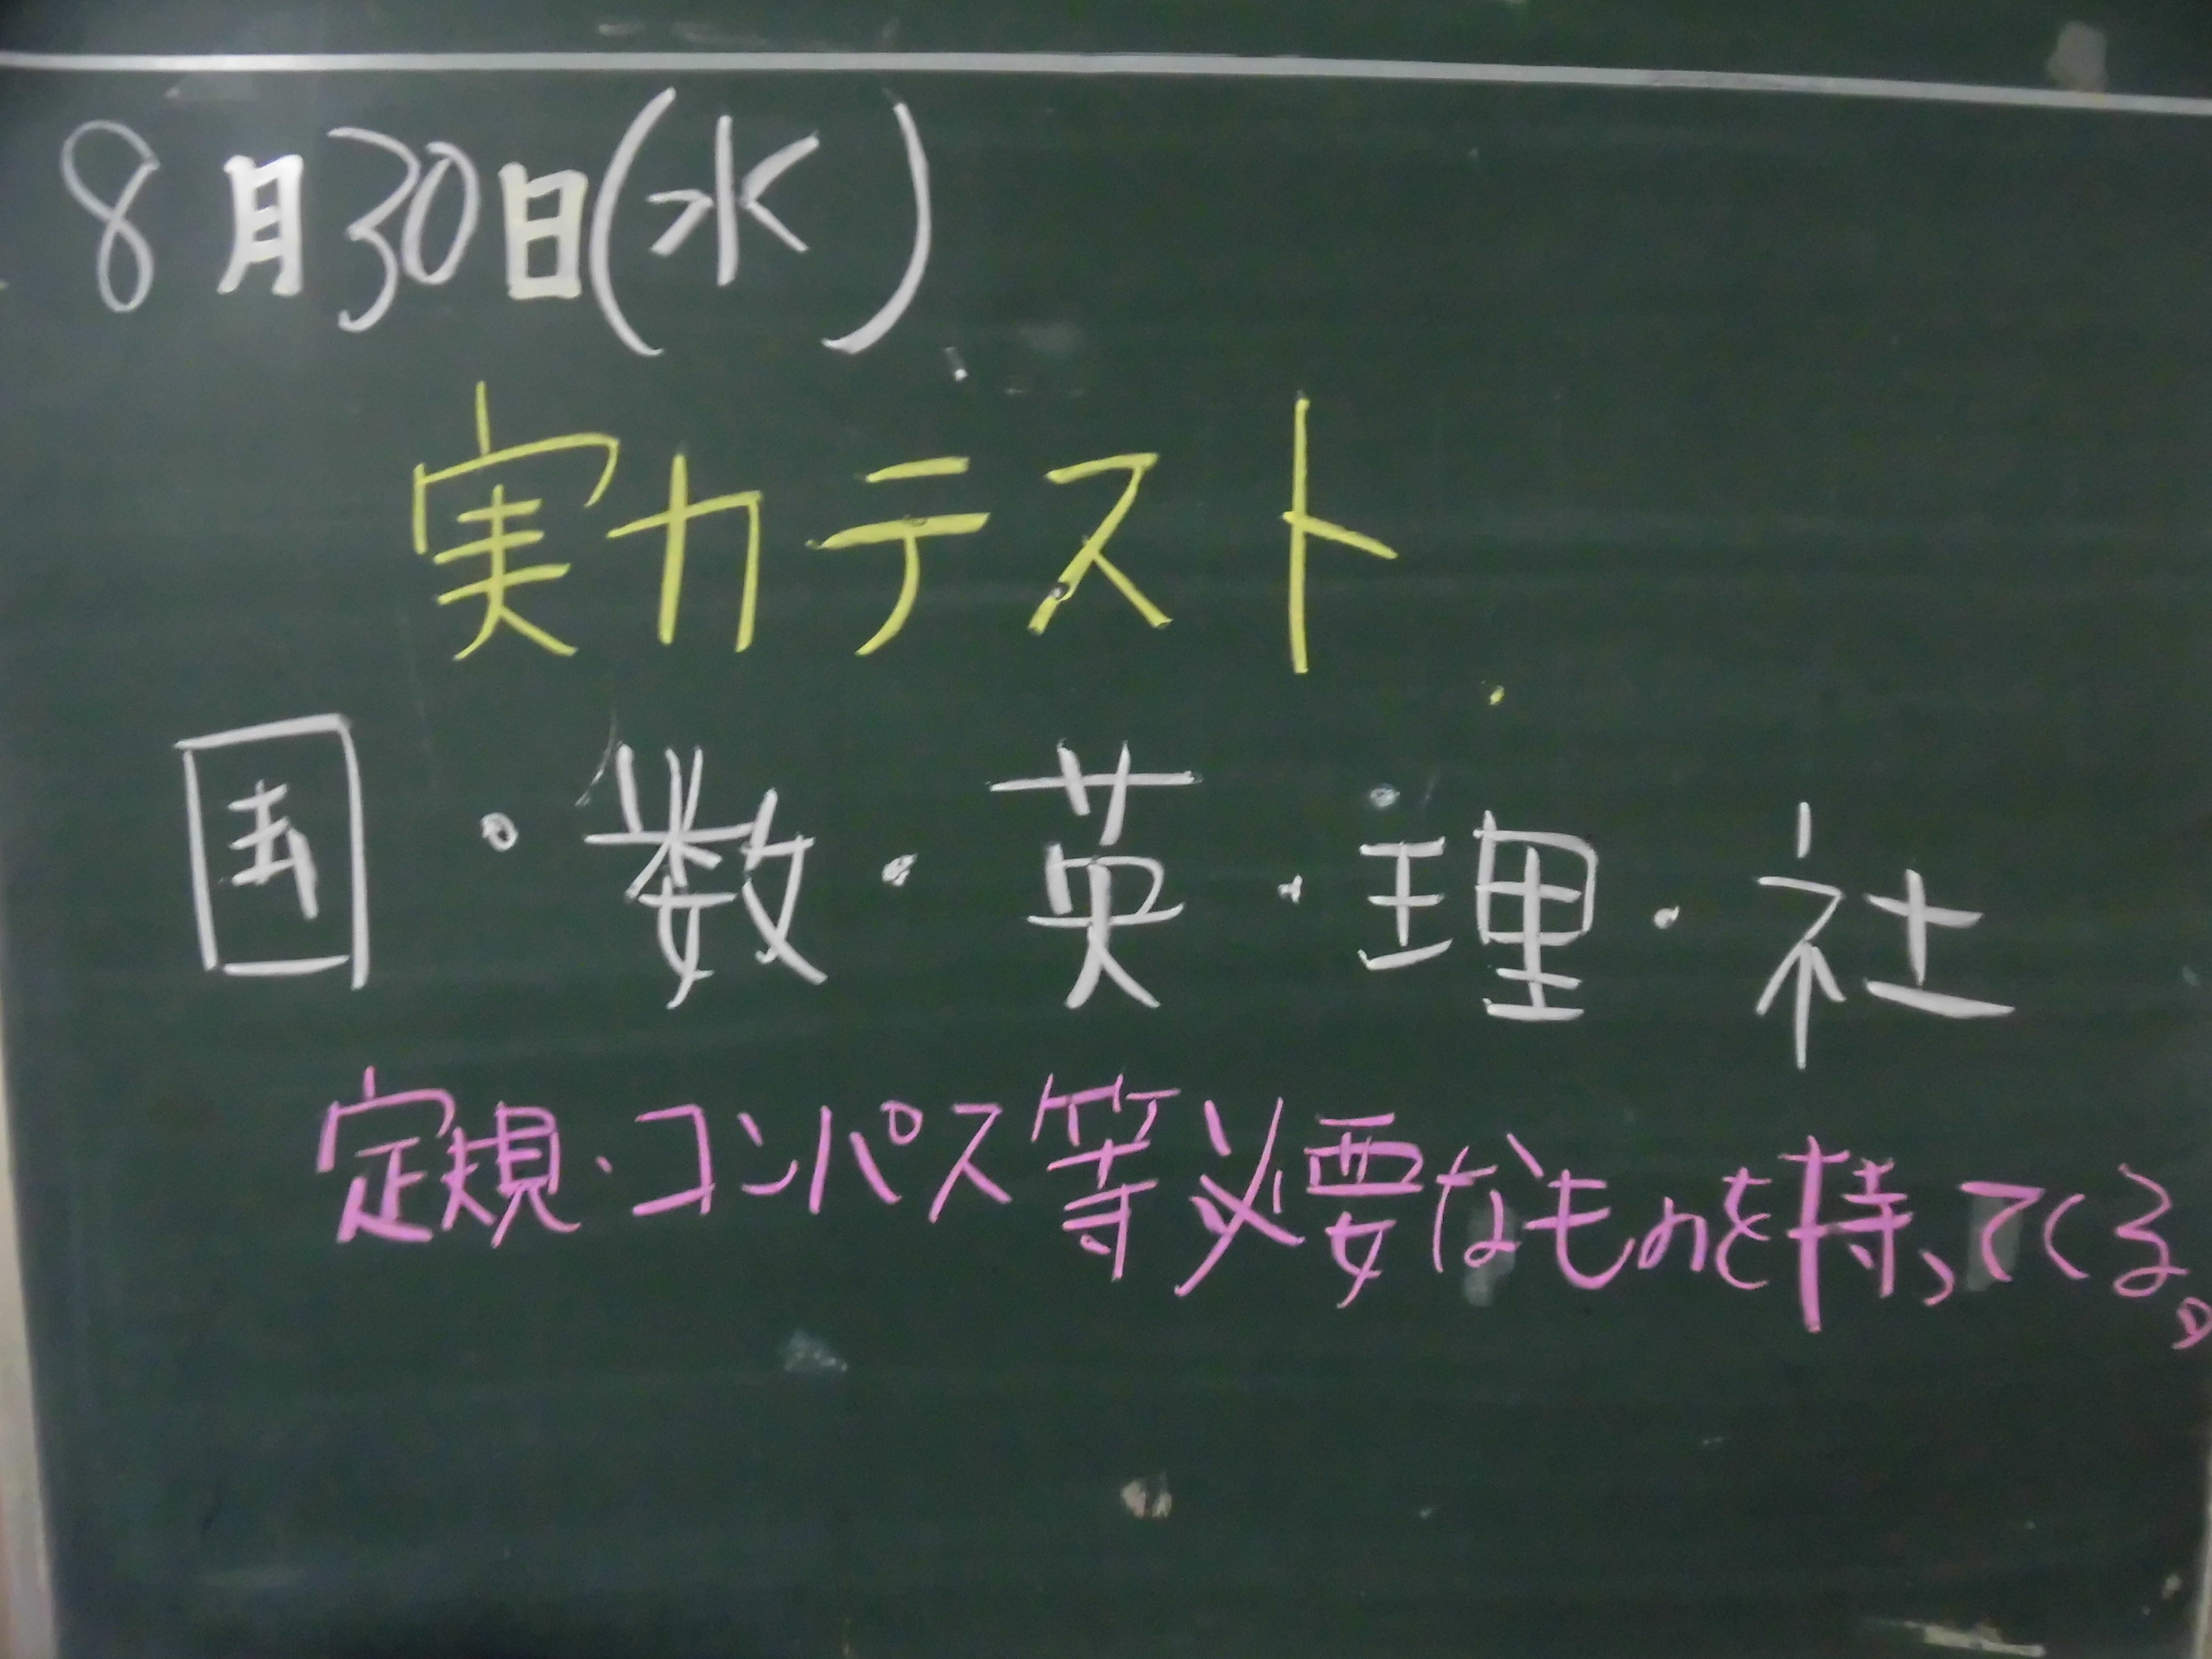 8月30日(水)
実力テスト
国・数・英・理・社
定規・コンパス等必要なものを持ってくる。